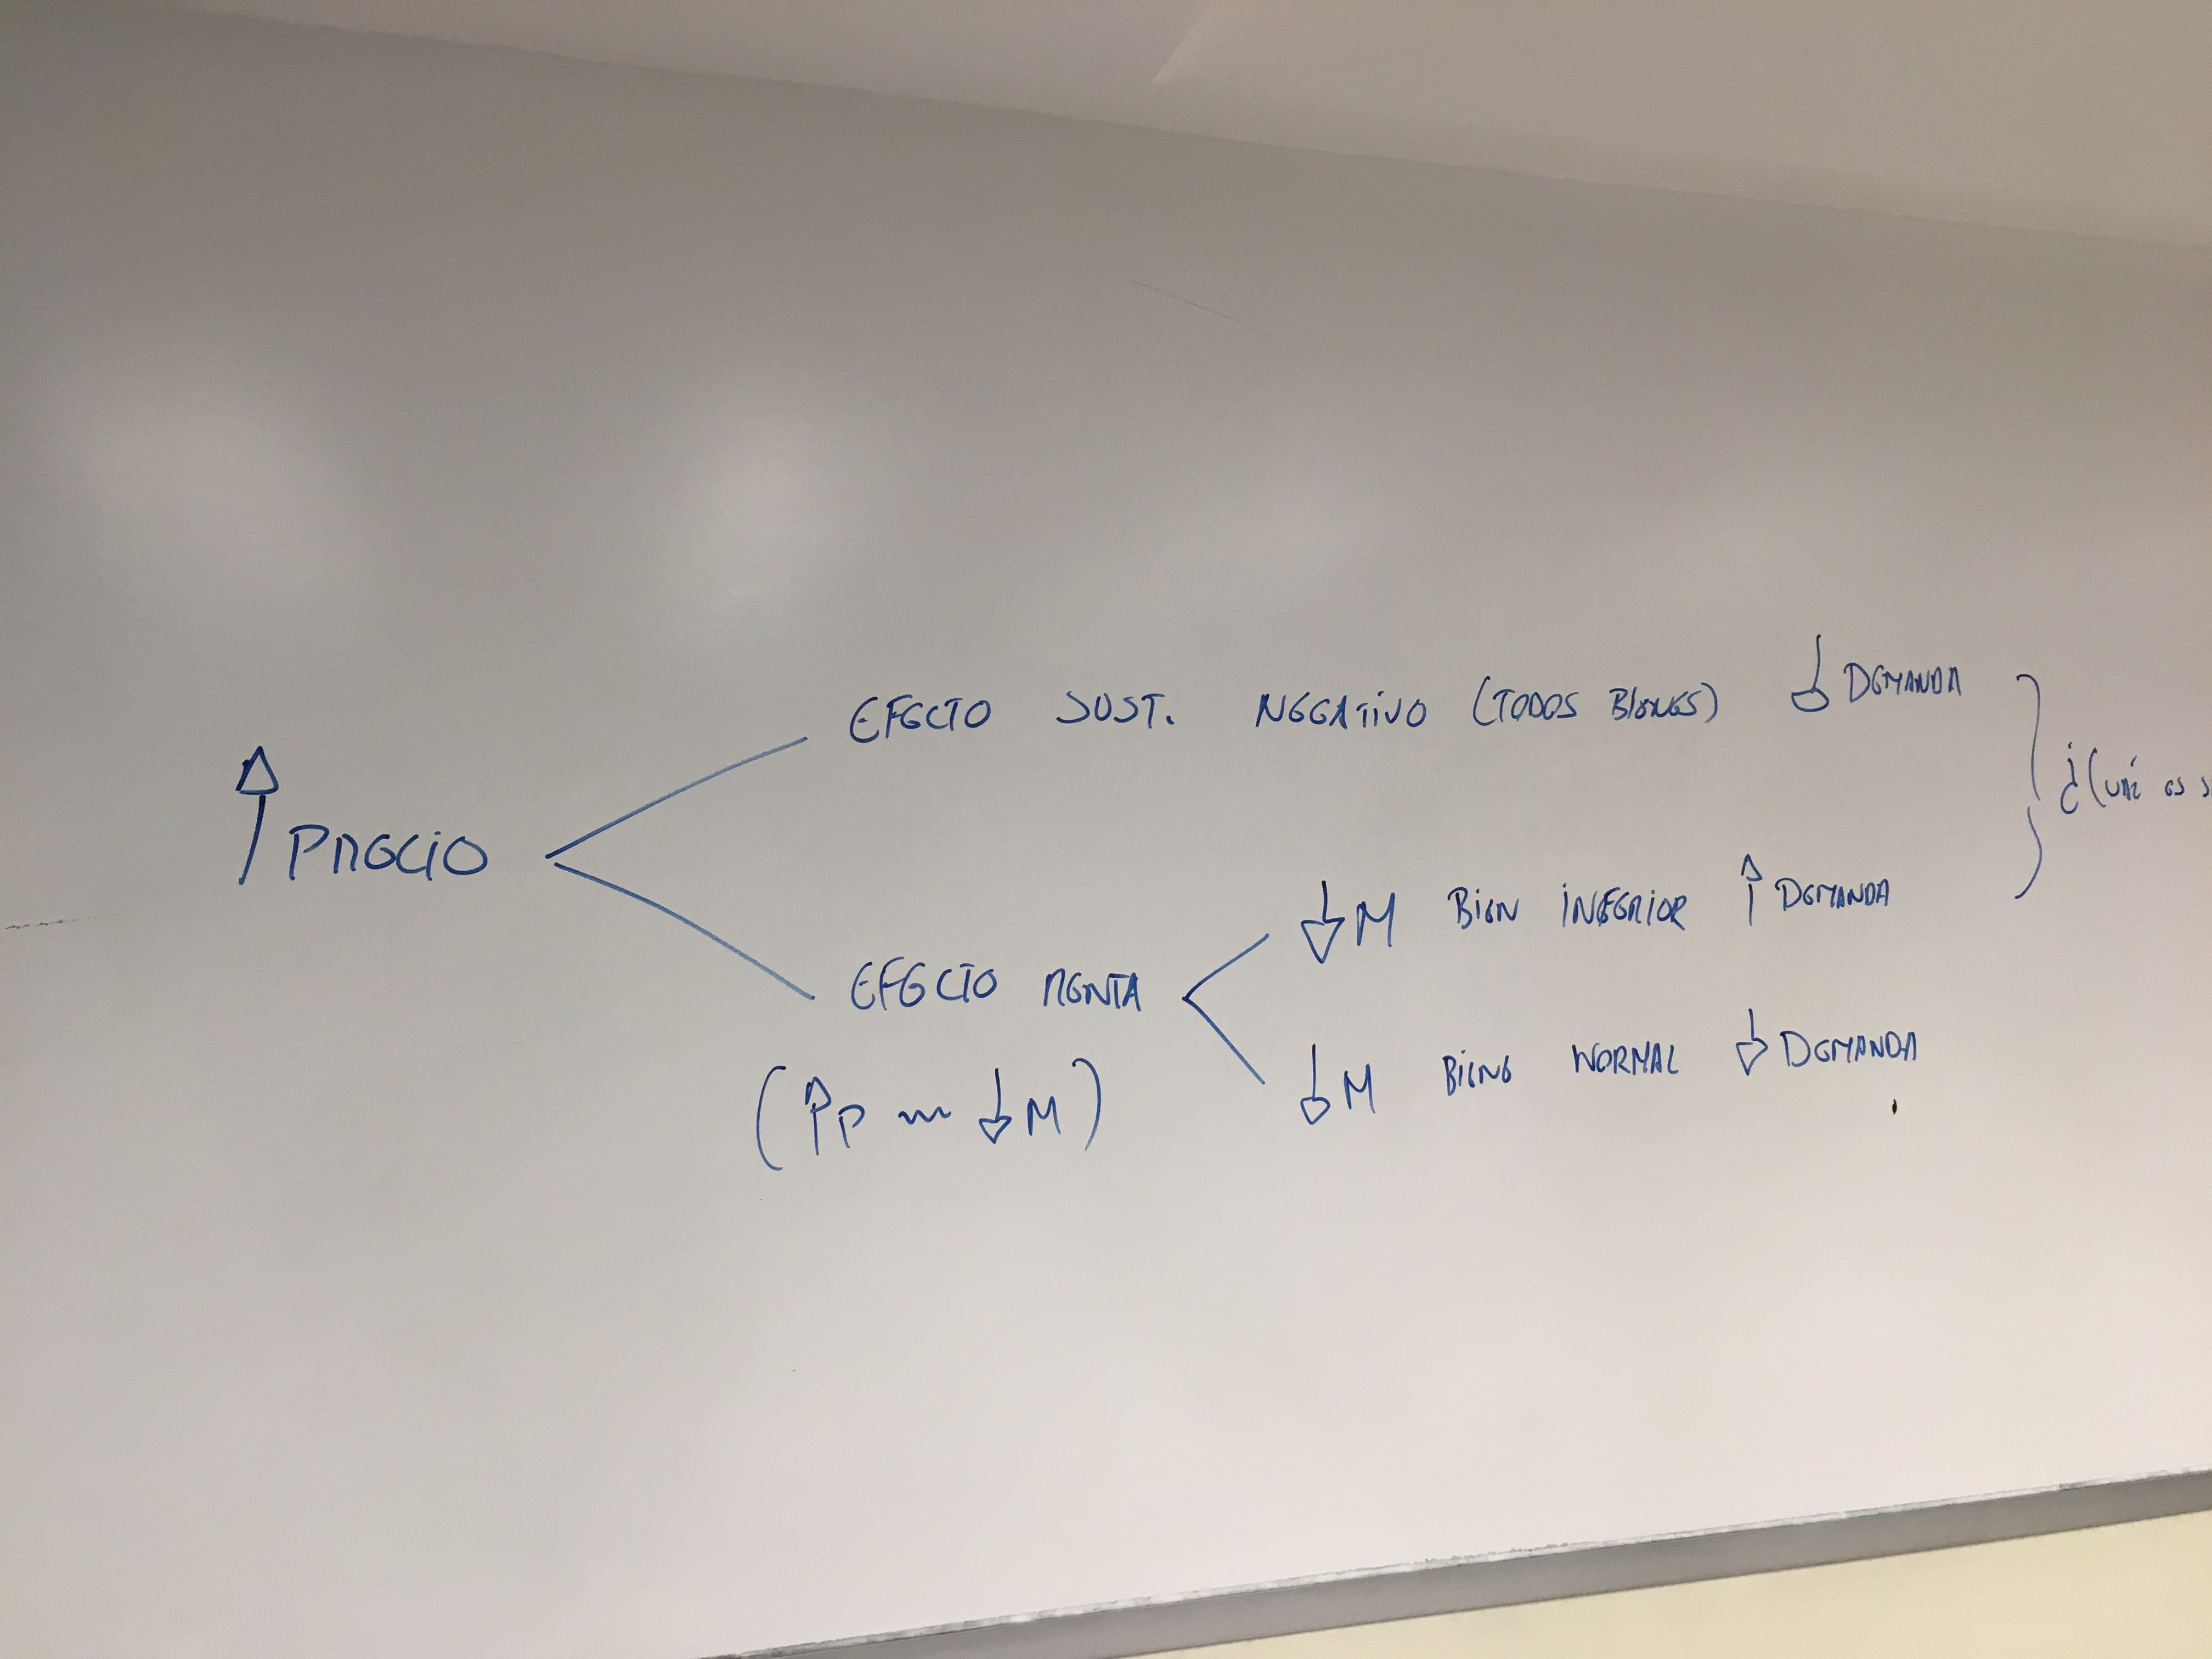 ↑ PRECIO
EFECTO SUST. NEGATIVO (TODOS BIENES) ↓ DEMANDA
EFECTO RENTA
(↑P ~ ↓M)
↓M BIEN INFERIOR ↑ DEMANDA
↓M BIENE NORMAL ↓ DEMANDA
¿CUÁL ES